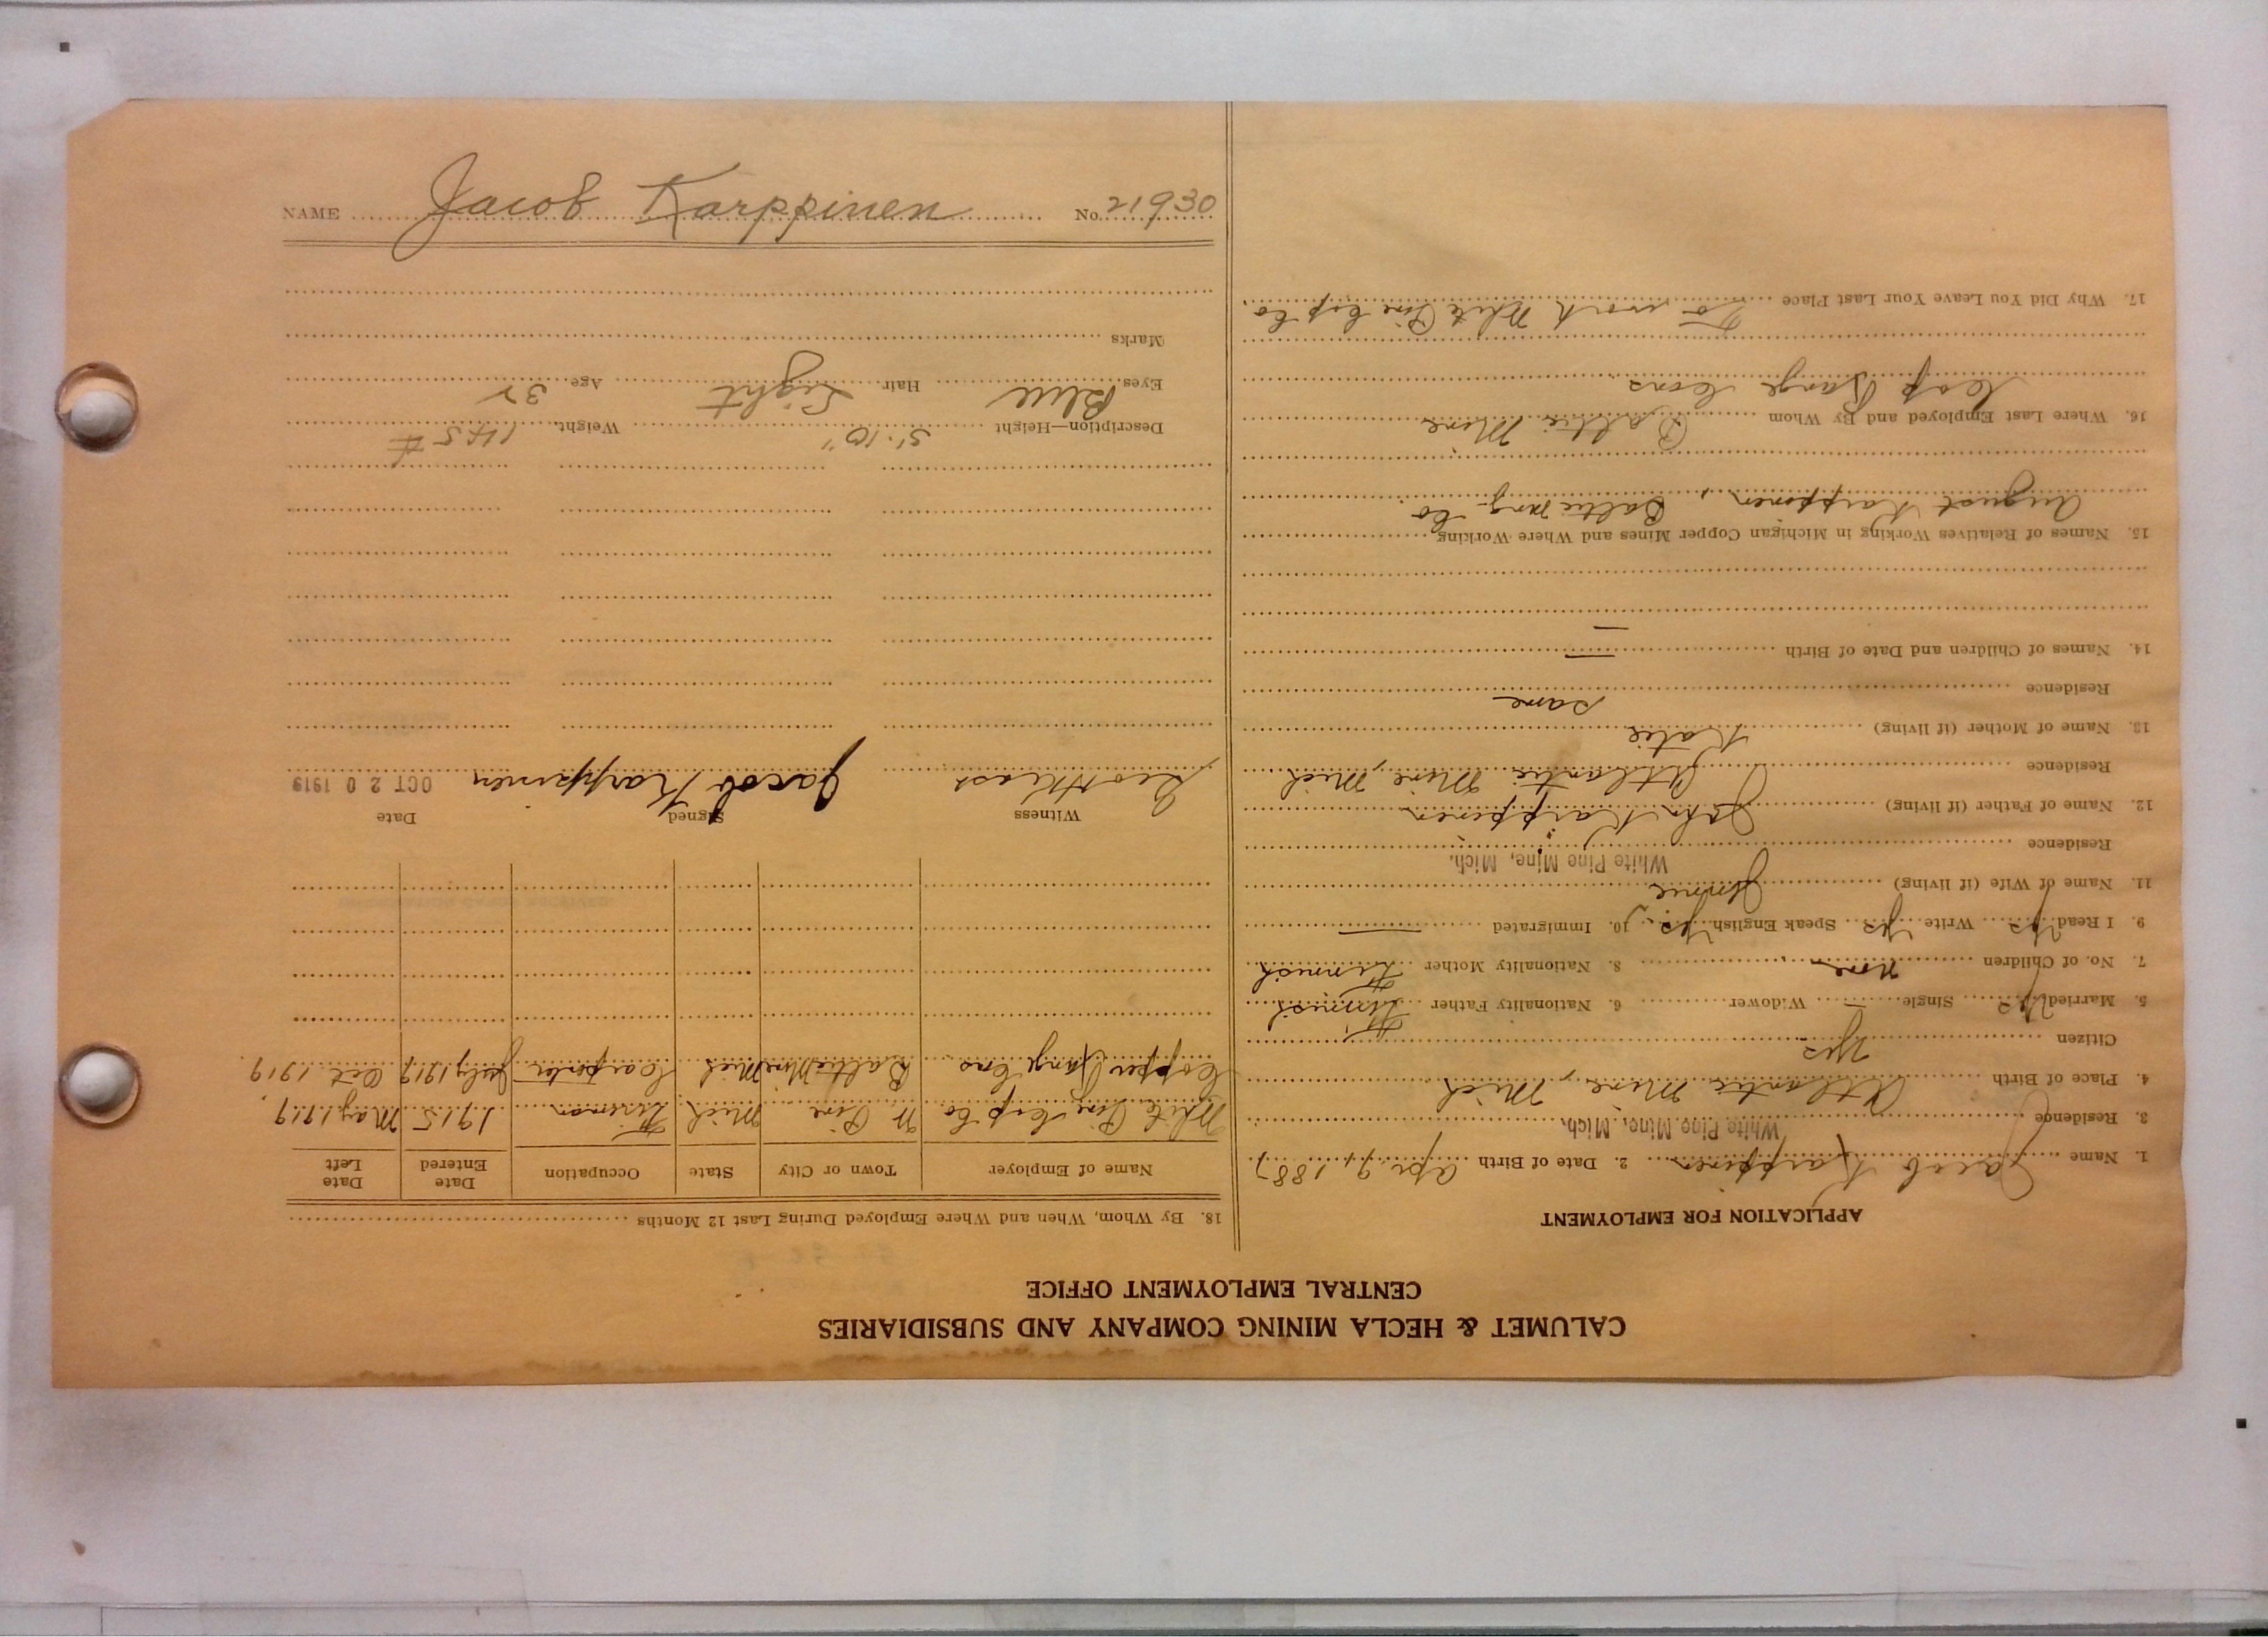 CALUMET & HECLA MINING COMPANY AND SUBSIDIARIES
CENTRAL EMPLOYMENT OFFICE
APPLICATION FOR EMPLOYMENT
1. Name Jacob Karppinen 2. Date of Birth Apr. 9, 1887
3. Residence White Pine Mine, Mich.
4. Place of Birth Atlantic Mine, Mich
Citizen Yes
5. Married Yes Single — Widower 6. Nationality Father Finnish
7. No. of Children None 8. Nationality Mother Finnish
9. I Read Yes Write Yes Speak English Yes 10. Immigrated —
11. Name of Wife (if living) Jennie
Residence White Pine Mine, Mich.
12. Name of Father (if living) John Karppinen
Residence Atlantic Mine, Mich
13. Name of Mother (if living) Katie
Residence same
14. Names of Children and Date of Birth —
15. Names of Relatives Working in Michigan Copper Mines and Where Working
August Karppinen, Baltic Mng. Co.
16. Where Last Employed and By Whom Baltic Mine
Cop Range Cons
17. Why Did You Leave Your Last Place To work White Pine Cop Co.
18. By Whom, When and Where Employed During Last 12 Months
Name of Employer Town or City State Occupation Date Entered Date Left
White Pine Cop Co W. Pine Mich Fireman 1915 May 1919
Copper Range Cons Baltic Mine Mich Carpenter July 1919 Oct. 1919
Witness Signed Date
Jacob Karppinen OCT 20 1919
Description—Height 5'.10" Weight 145#
Eyes Blue Hair Light Age 32
Marks
NAME Jacob Karppinen No. 21930